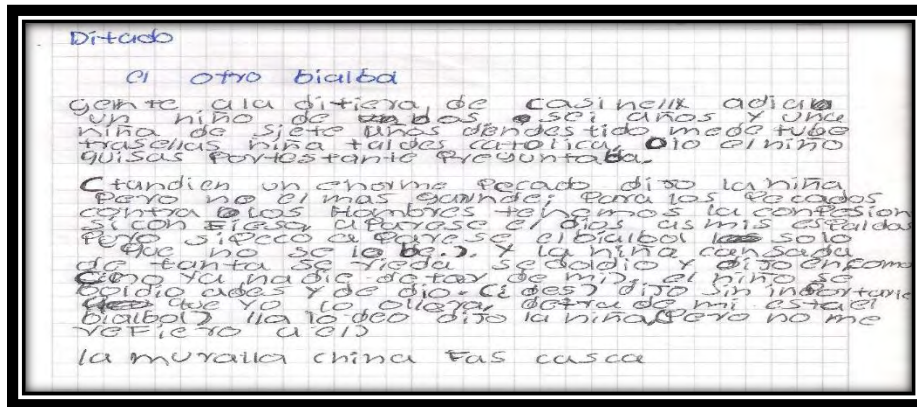 Ditado
el otro bialba
gente ala ditiera, de casinellx adian
un niño de sei años y una
niña de siete unas dendestido mede tube
trasellas niña taldes catolica, oio el niño
quisas Portestante Preguntaba.
Ctandien un enorme Pecado dijo la niña
Pero no el mas garnde; Para los Pecados
contra los Hombres tenemos la confesion
si con Fieso, aparese el dios as mis estaldas
Pero siPeco a Parese el bialbol solo
Que no se lo y la niña cansada
de tanta se riedad se doldio y dijo encomo
como ya nadie de mi) el niño se
boldio ades y de dio. (i des) dijo sin inportarle
que yo lo ollera detra de mi esta el
bialbol) lla lo deo dijo la niña, (Pero no me
refiero a el)
la muralla china Fas casca